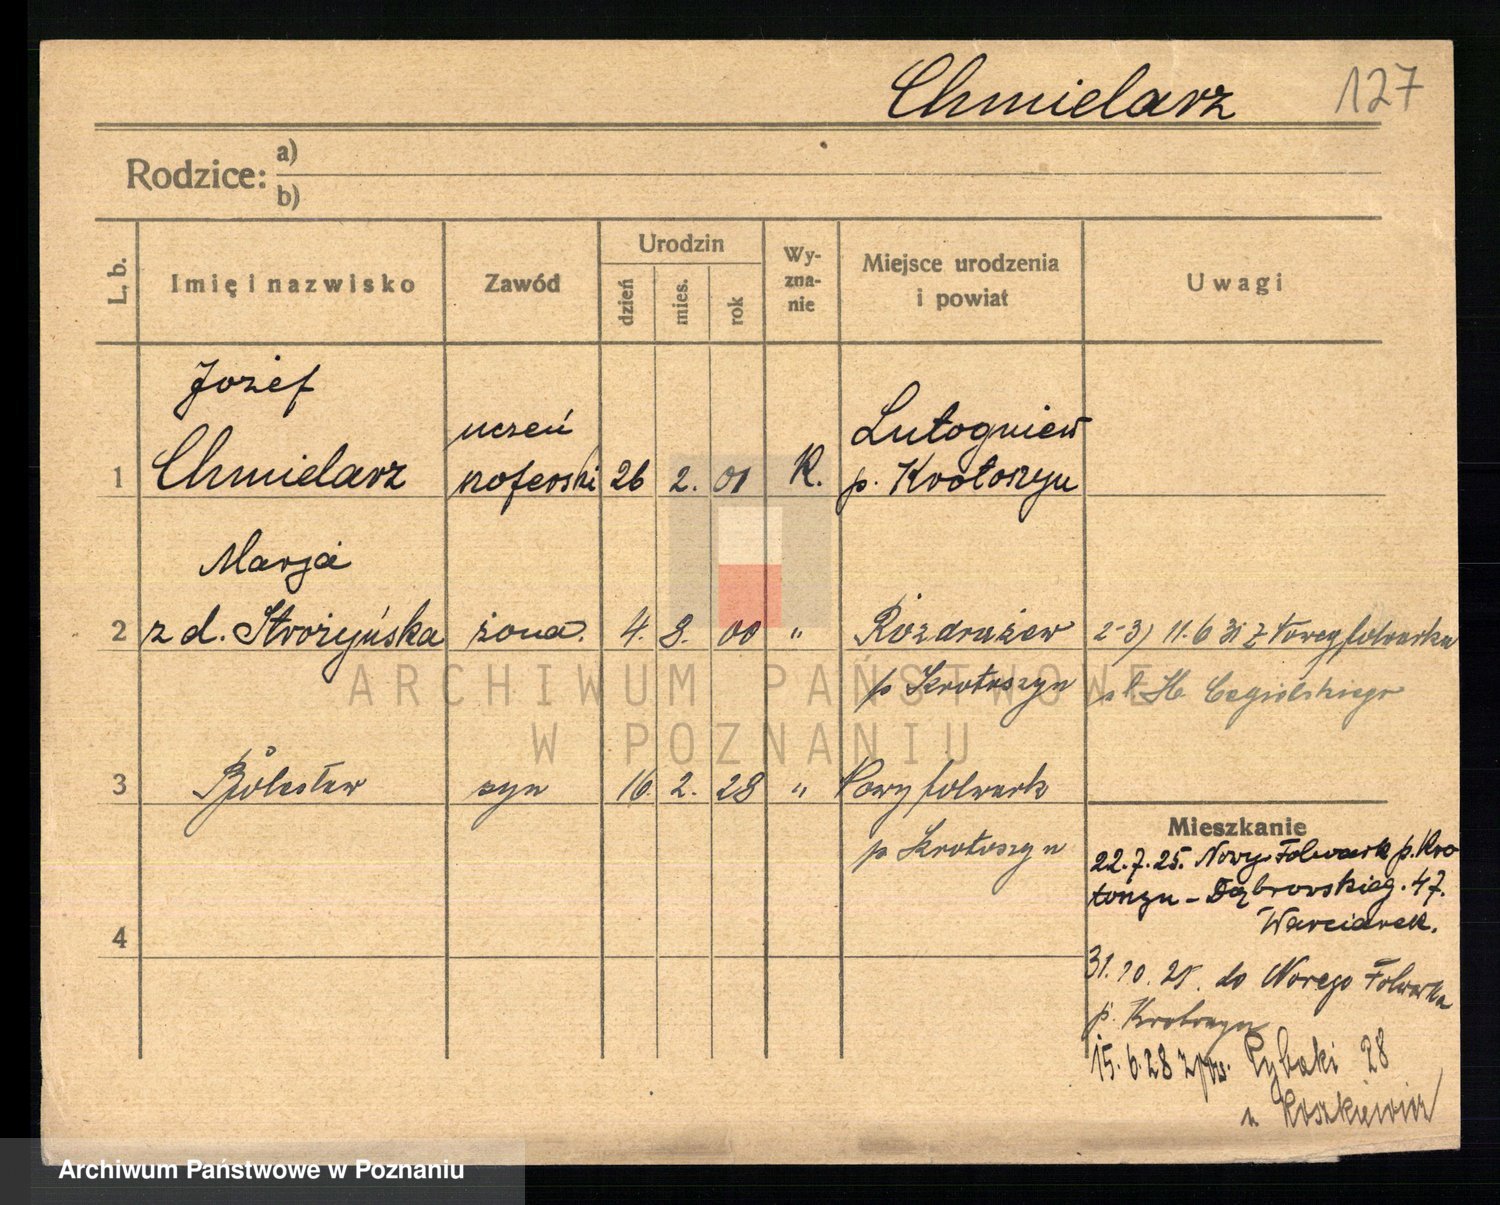 Chmielarz 127
Rodzice: a)
b)
L. b. Imię i nazwisko Zawód Urodzin dzień mies. rok Wy-zna-nie Miejsce urodzenia i powiat Uwagi
Jozef
uczeń Lutogniew
1 Chmielarz szoferski 26 2. 01 K. p. Krotoszyn
Marja
2 z d. Strożyńska żona. 4. 8. 00 " Rozdrażew 2-3) 11. 6 31 z Nowegofolwarku
p Krotoszyn H. Cegielskiego
3 Bolesław syn 16. 2. 28 " Nowyfolwark
p Krotoszyn
Mieszkanie
22.7.25. Nowy-Folwark p. Kro
toszyn - Dąbrowskieg. 47.
Warciarek.
4
31. 10. 25. do Nowego Folwarku
p. Krotoszyn
15. 6. 28 Rybaki 28
u Koszkiewicz
ARCHIWUM PAŃSTWOWE
W POZNANIU
Archiwum Państwowe w Poznaniu